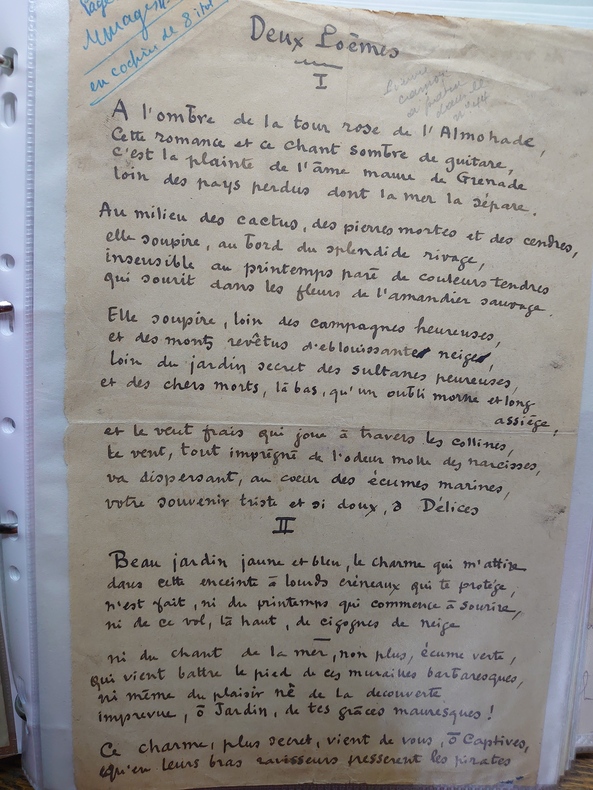 Page
en cochin de 8 ital
Deux Poèmes
I
A l'ombre de la tour rose de l'Almohade,
Cette romance et ce chant sombre de guitare,
c'est la plainte de l'âme maure de Grenade
loin des pays perdus dont la mer la sépare.
Au milieu des cactus, des pierres mortes et des cendres,
elle soupire, au bord du splendide rivage,
insensible au printemps paré de couleurs tendres
qui sourit dans les fleurs de l'amandier sauvage.
Elle soupire, loin des campagnes heureuses,
et des monts revêtus d'eblouissante neige,
loin du jardin secret des sultanes peureuses,
et des chers morts, là bas, qu'un oubli morne et long
assiège,
et le vent frais qui joue à travers les collines,
le vent, tout imprégné de l'odeur molle des narcisses,
va dispersant, au coeur des écumes marines,
votre souvenir triste et si doux, ô Délices
II
Beau jardin jaune et bleu, le charme qui m'attire
dans cette enceinte à lourds créneaux qui te protège,
n'est fait, ni du printemps qui commence à sourire,
ni de ce vol, là haut, de cigognes de neige
ni du chant de la mer, non plus, écume verte,
qui vient battre le pied de ces murailles barbaresques,
ni même du plaisir né de la decouverte
imprevue, ô Jardin, de tes grâces mauresques !
Ce charme, plus secret, vient de vous, ô Captives,
qu'en leurs bras ravisseurs presserent les pirates